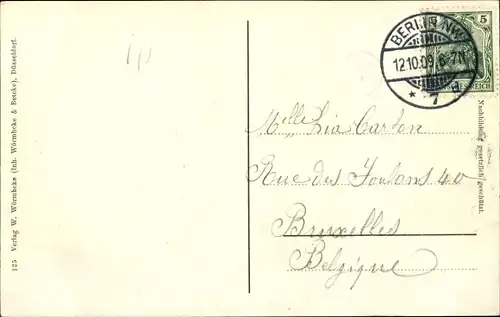 125 Verlag W. Wörmbcke (Inh. Wörmbcke & Bencke), Düsseldorf.
BERLIN NW
12.10.09. 6-7N
* 7
5
REICH
Nachbildung gesetzlich geschützt.
Mlle Lia Carton
Rue des Foulons 40
Bruxelles
Belgique